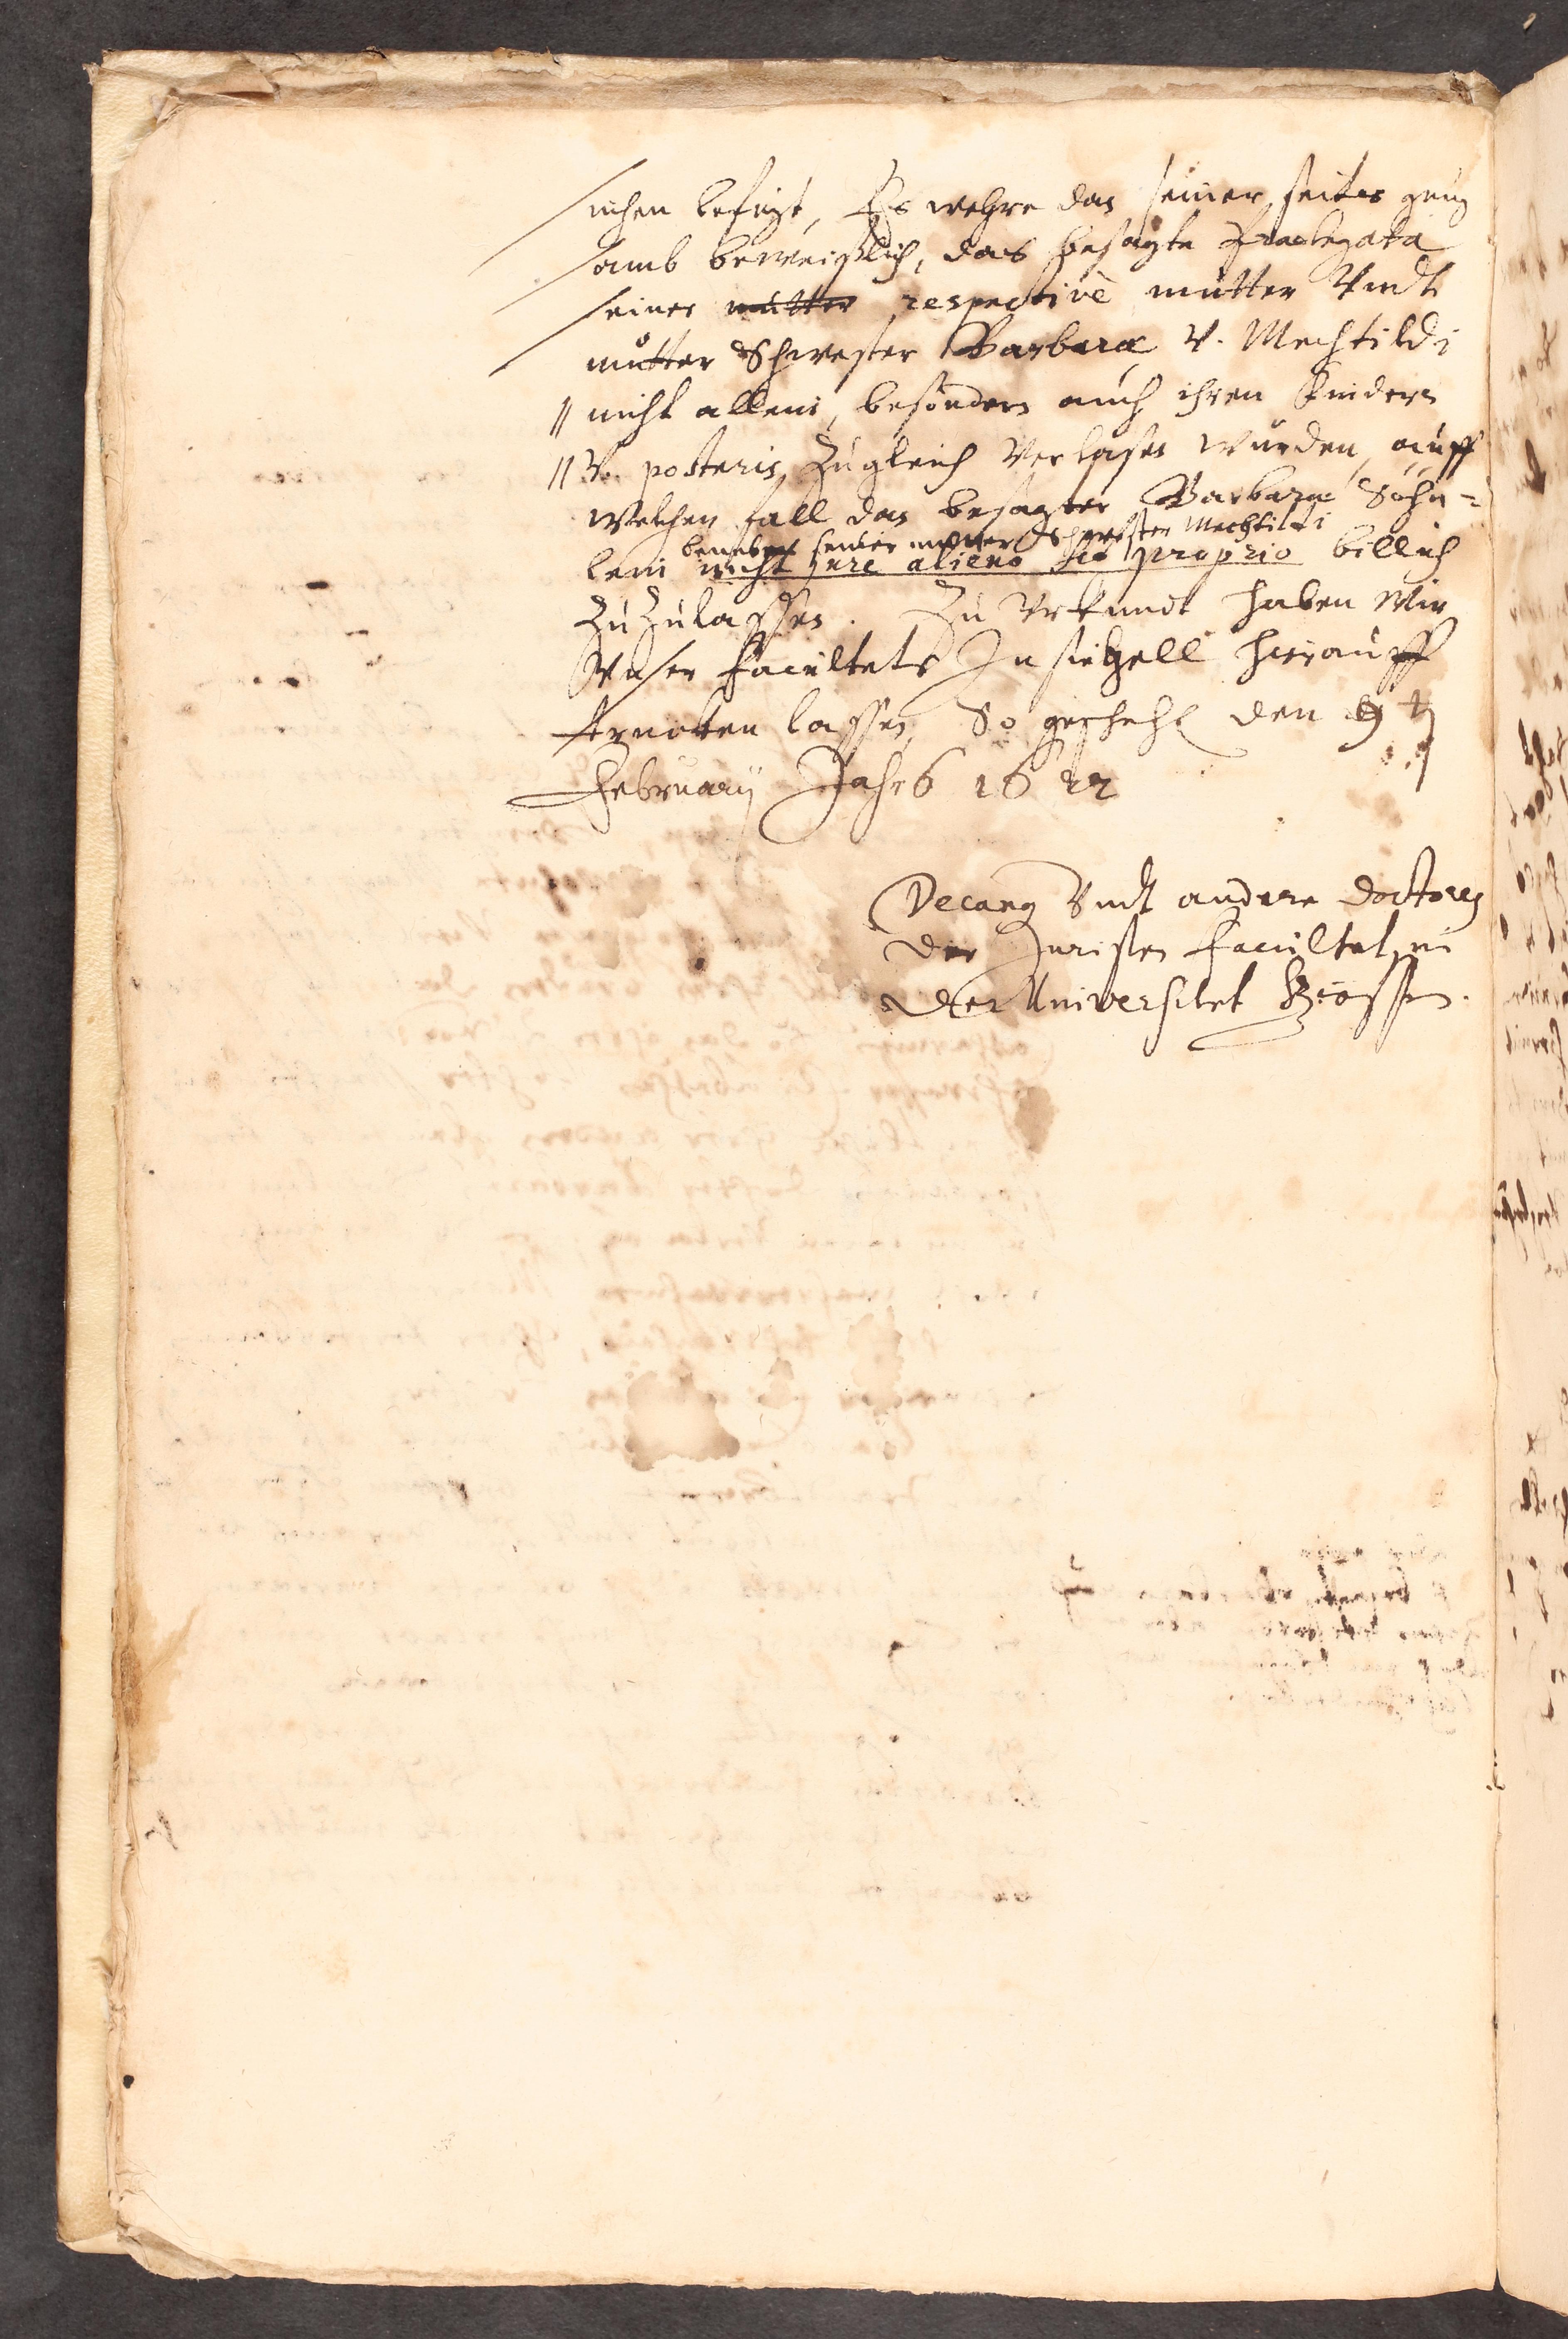 suchen befugt, Es wehre dan seiner seiten gnug
samb beweißlich, das besagte Praelegata
seiner mutter respectivè mutter Vndt
mutter Schwester Barbarae V. Mechtildi
nicht allein, besondern auch ihren Kindern
V. posteris zugleich Verlasen wurden, auff
welchen fall dan besagter Barbarae Söhn=
beneben seiner mutter Schwester Mechtildi
lein nicht jure alieno sed proprio billich
zuzulassen. Zu Vrkundt haben Wir
Vnser Facultets Insiegell hierauff
trucken lassen, So geschehen den 9 t.
February Jahrs 1622
Decanus Vndt andere Doctores
der Juristen Facultet in
der Universitet Giessen.